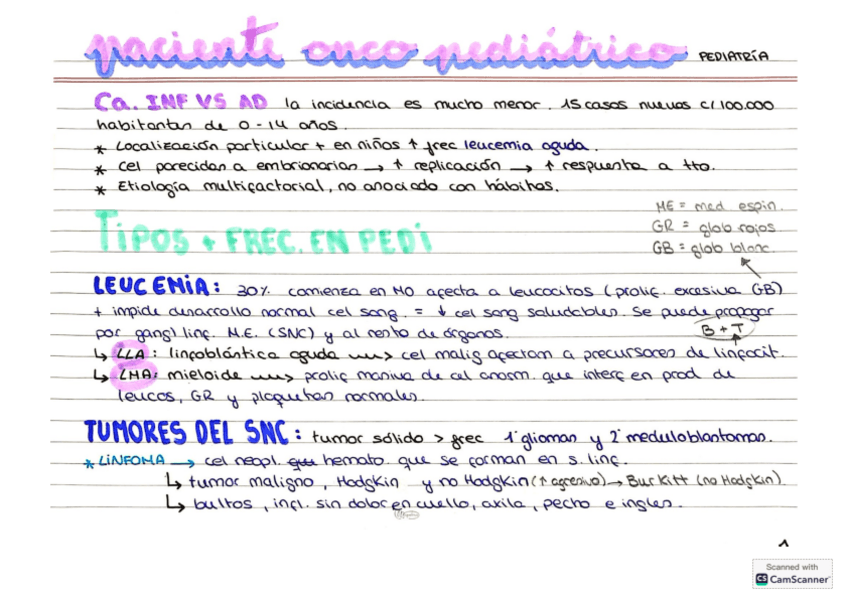 paciente onco pediátrico PEDIATRÍA
Ca. INF VS AD la incidencia es mucho menor. 15 casos nuevos c/100.000
habitantes de 0-14 años.
* Localización particular + en niños ↑ frec leucemia aguda.
* cel parecidas a embrionarias → + replicación → ↑ respuesta a tto.
* Etiología multifactorial, no asociado con hábitos.
ME = med espin.
GR = glob rojos
TIPOS + FREC. EN PEDI
GB = glob blanc.
LEUCEMIA: 30% comienza en MO afecta a leucocitos (prolif. excesiva GB)
+ impide desarrollo normal cel sang. = ↓ cel sang saludables. Se puede propagar
por gangl linf. M.E. (SNC) y al resto de órganos.
B + T
↳ LLA: linfoblástica aguda → cel malig afectan a precursores de linfocit.
↳ LMA: mieloide → prolif masiva de cel anorm. que interf en prod de
leucos, GR y plaquetas normales.
TUMORES DEL SNC: tumor sólido > frec 1º gliomas y 2º meduloblastomas.
* LINFOMA → cel neopl. hemato. que se forman en s. linf.
↳ tumor maligno, Hodgkin y no Hodgkin (↑ agresivo) → Burkitt (no Hodgkin)
↳ bultos, infl. sin dolor en cuello, axila, pecho e ingles.
1
Scanned with
CS CamScanner